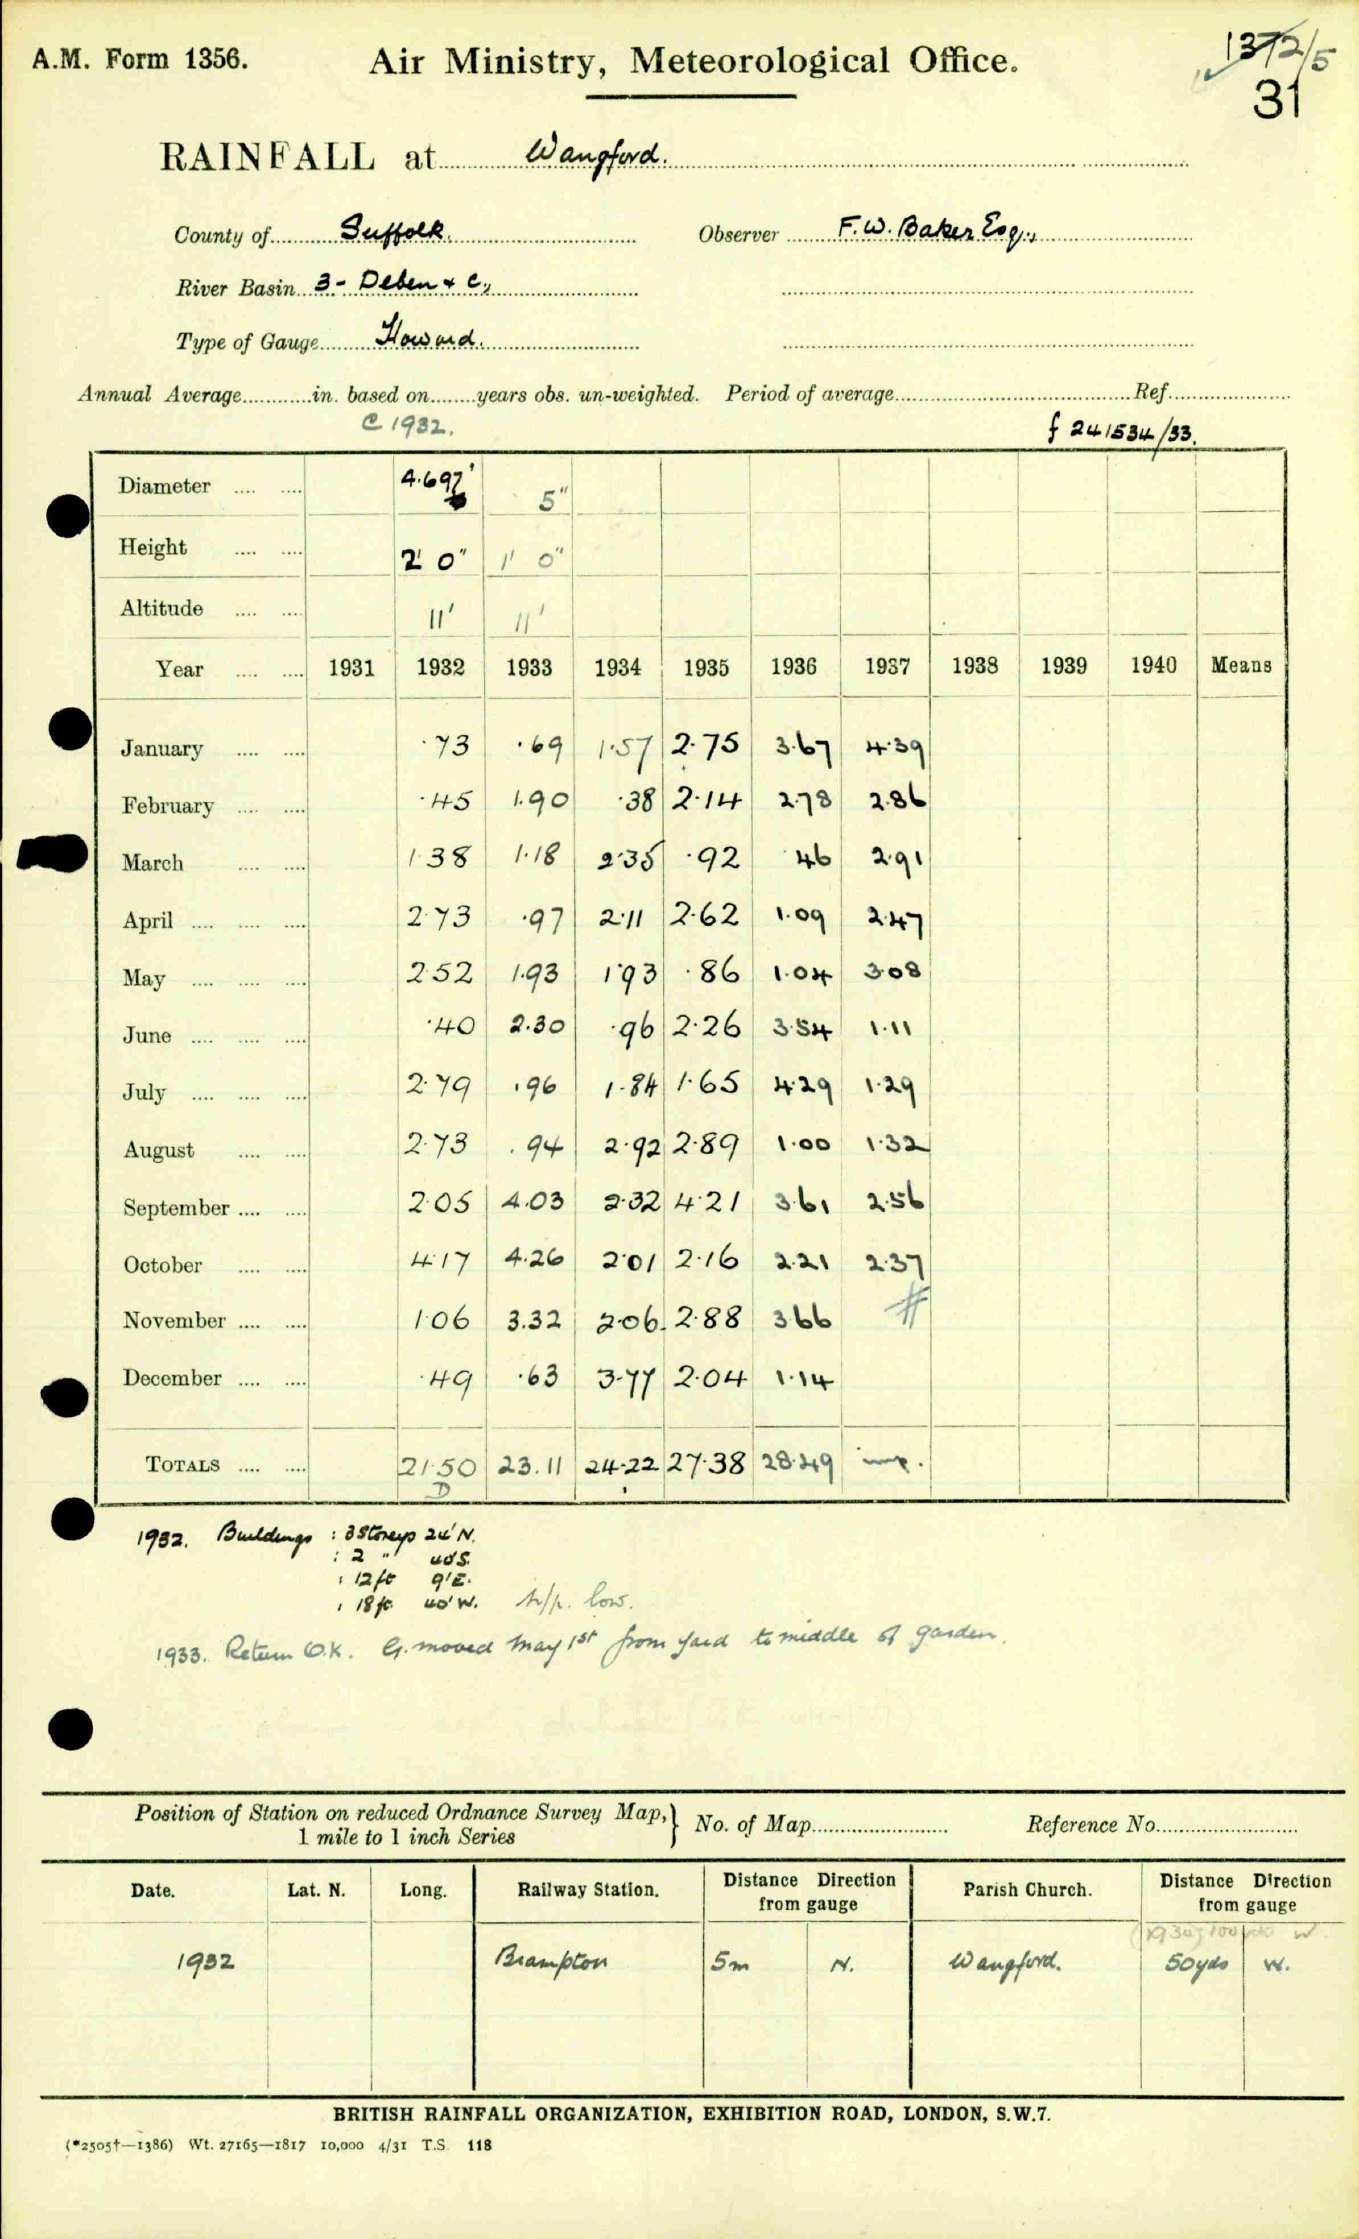 A.M. Form 1356. Air Ministry, Meteorological Office. 1372/5
31
RAINFALL at Wangford.
County of Suffolk. Observer F. W. Baker Esq.,
River Basin 3- Deben & c.,
Type of Gauge Howard.
Annual Average in. based on years obs. un-weighted. Period of average Ref.
C 1932. f 241534/33.
Diameter 4.697" 5"
Height 2' 0" 1' 0"
Altitude 11' 11'
Year 1931 1932 1933 1934 1935 1936 1937 1938 1939 1940 Means
January ·73 ·69 1·57 2·75 3·67 4·39
February ·45 1·90 ·38 2·14 2·78 2·86
March 1·38 1·18 2·35 ·92 ·46 2·91
April 2·73 ·97 2·11 2·62 1·09 2·47
May 2·52 1·93 1·93 ·86 1·04 3·08
June ·40 2·30 ·96 2·26 3·54 1·11
July 2·79 ·96 1·84 1·65 4·29 1·29
August 2·73 ·94 2·92 2·89 1·00 1·32
September 2·05 4·03 2·32 4·21 3·61 2·56
October 4·17 4·26 2·01 2·16 2·21 2·37
November 1·06 3·32 2·06 2·88 3·66 #
December ·49 ·63 3·77 2·04 1·14
TOTALS 21·50 23·11 24·22 27·38 28·49 imp.
D
1932. Buildings : 3 Storeys 24' N.
: 2 " 40' S.
: 12 ft 9' E.
: 18 ft 40' W. low.
1933. Return O.K. G. moved May 1st from yard to middle of garden.
Position of Station on reduced Ordnance Survey Map, } No. of Map Reference No.
1 mile to 1 inch Series
Date. Lat. N. Long. Railway Station. Distance Direction from gauge Parish Church. Distance Direction from gauge
(1934) 100 yds W
1932 Brampton 5m N. Wangford. 50yds W.
BRITISH RAINFALL ORGANIZATION, EXHIBITION ROAD, LONDON, S.W.7.
(*2505†—1386) Wt. 27165—1817 10,000 4/31 T.S. 118